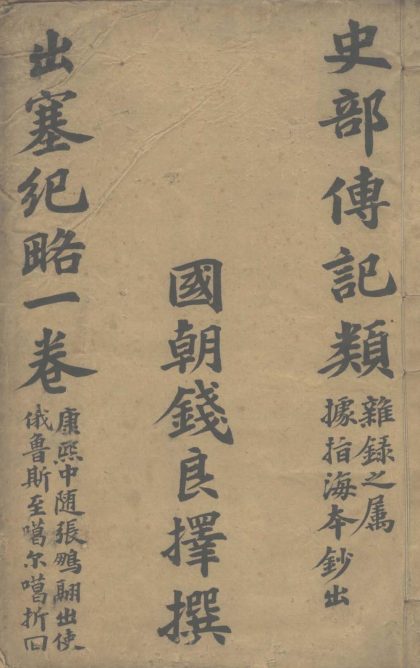 史部傳記類
雜録之属
據指海本鈔出
國朝錢良擇撰
出塞纪略一卷
康熙中随張鵬翮出使
俄鲁斯至噶尔噶折回